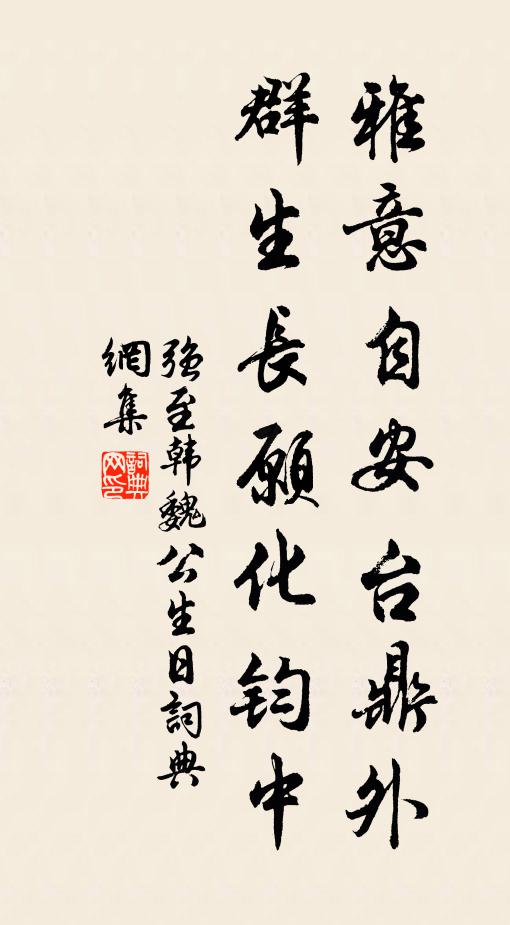 雅意自安台鼎外
群生長願化鈞中
强至韩魏公生日詞典
網集
詞典网印